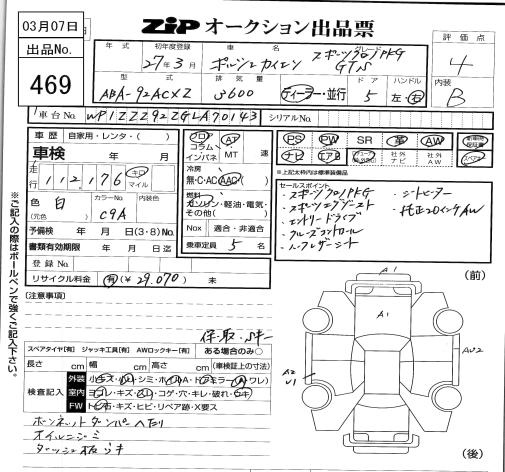 03月07日
出品No.
469
ZIP オークション出品票
年式 初年度登録 車名 グレード
27年3月 ポルシェカイエン スポーツクロノPKG
GTS
評価点
4
型式 排気量 ドア ハンドル
ABA-92ACXZ 3600 ディーラー・並行 5 左・右
内装
B
車台No. WP1ZZZ92ZGLA70143 シリアルNo.
車歴 自家用・レンタ・( )
車検 年 月
走行 112,176 キロ マイル
色 白 カラーNo. 内装色
(元色) C9A
予備検 年 月 日(3・8)No.
書類有効期限 年 月 日迄
登録No.
リサイクル料金 有(¥29,070) 未
フロア コラム インパネ AT MT 速
冷房
無・C・AC・AAC
燃料
ガソリン・軽油・電気・その他( )
Nox 適合・非適合
乗車定員 5 名
PS PW SR 革 AW
ナビ エアB 社外ナビ 社外AW
※上記太枠内は標準装備品
セールスポイント
・スポーツクロノPKG ・シートヒーター
・スポーツエグゾースト ・純正20インチAW
・エントリードライブ
・クルーズコントロール
・ハーフレザーシート
※ご記入の際はボールペンで強くご記入下さい。
(注意事項)
保・取・Sキー
スペアタイヤ[有] ジャッキ工具[有] AWロックキー[有] ある場合のみ○
長さ cm 幅 cm 高さ cm (車検証上の寸法)
検査記入
外装
室内
FW トビ石・キズ・ヒビ・リペア跡・X要ス
ボンネットダンパーへたり
オイルニジミ
(前)
A1
A1
A2
U1
AU2
(後)